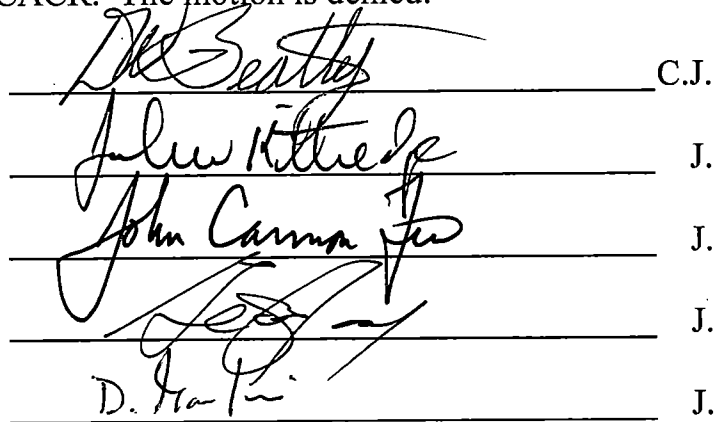 CACR. The motion is denied.
Beatty C.J.
Kittredge J.
John Cannon Few J.
J.
D. J.